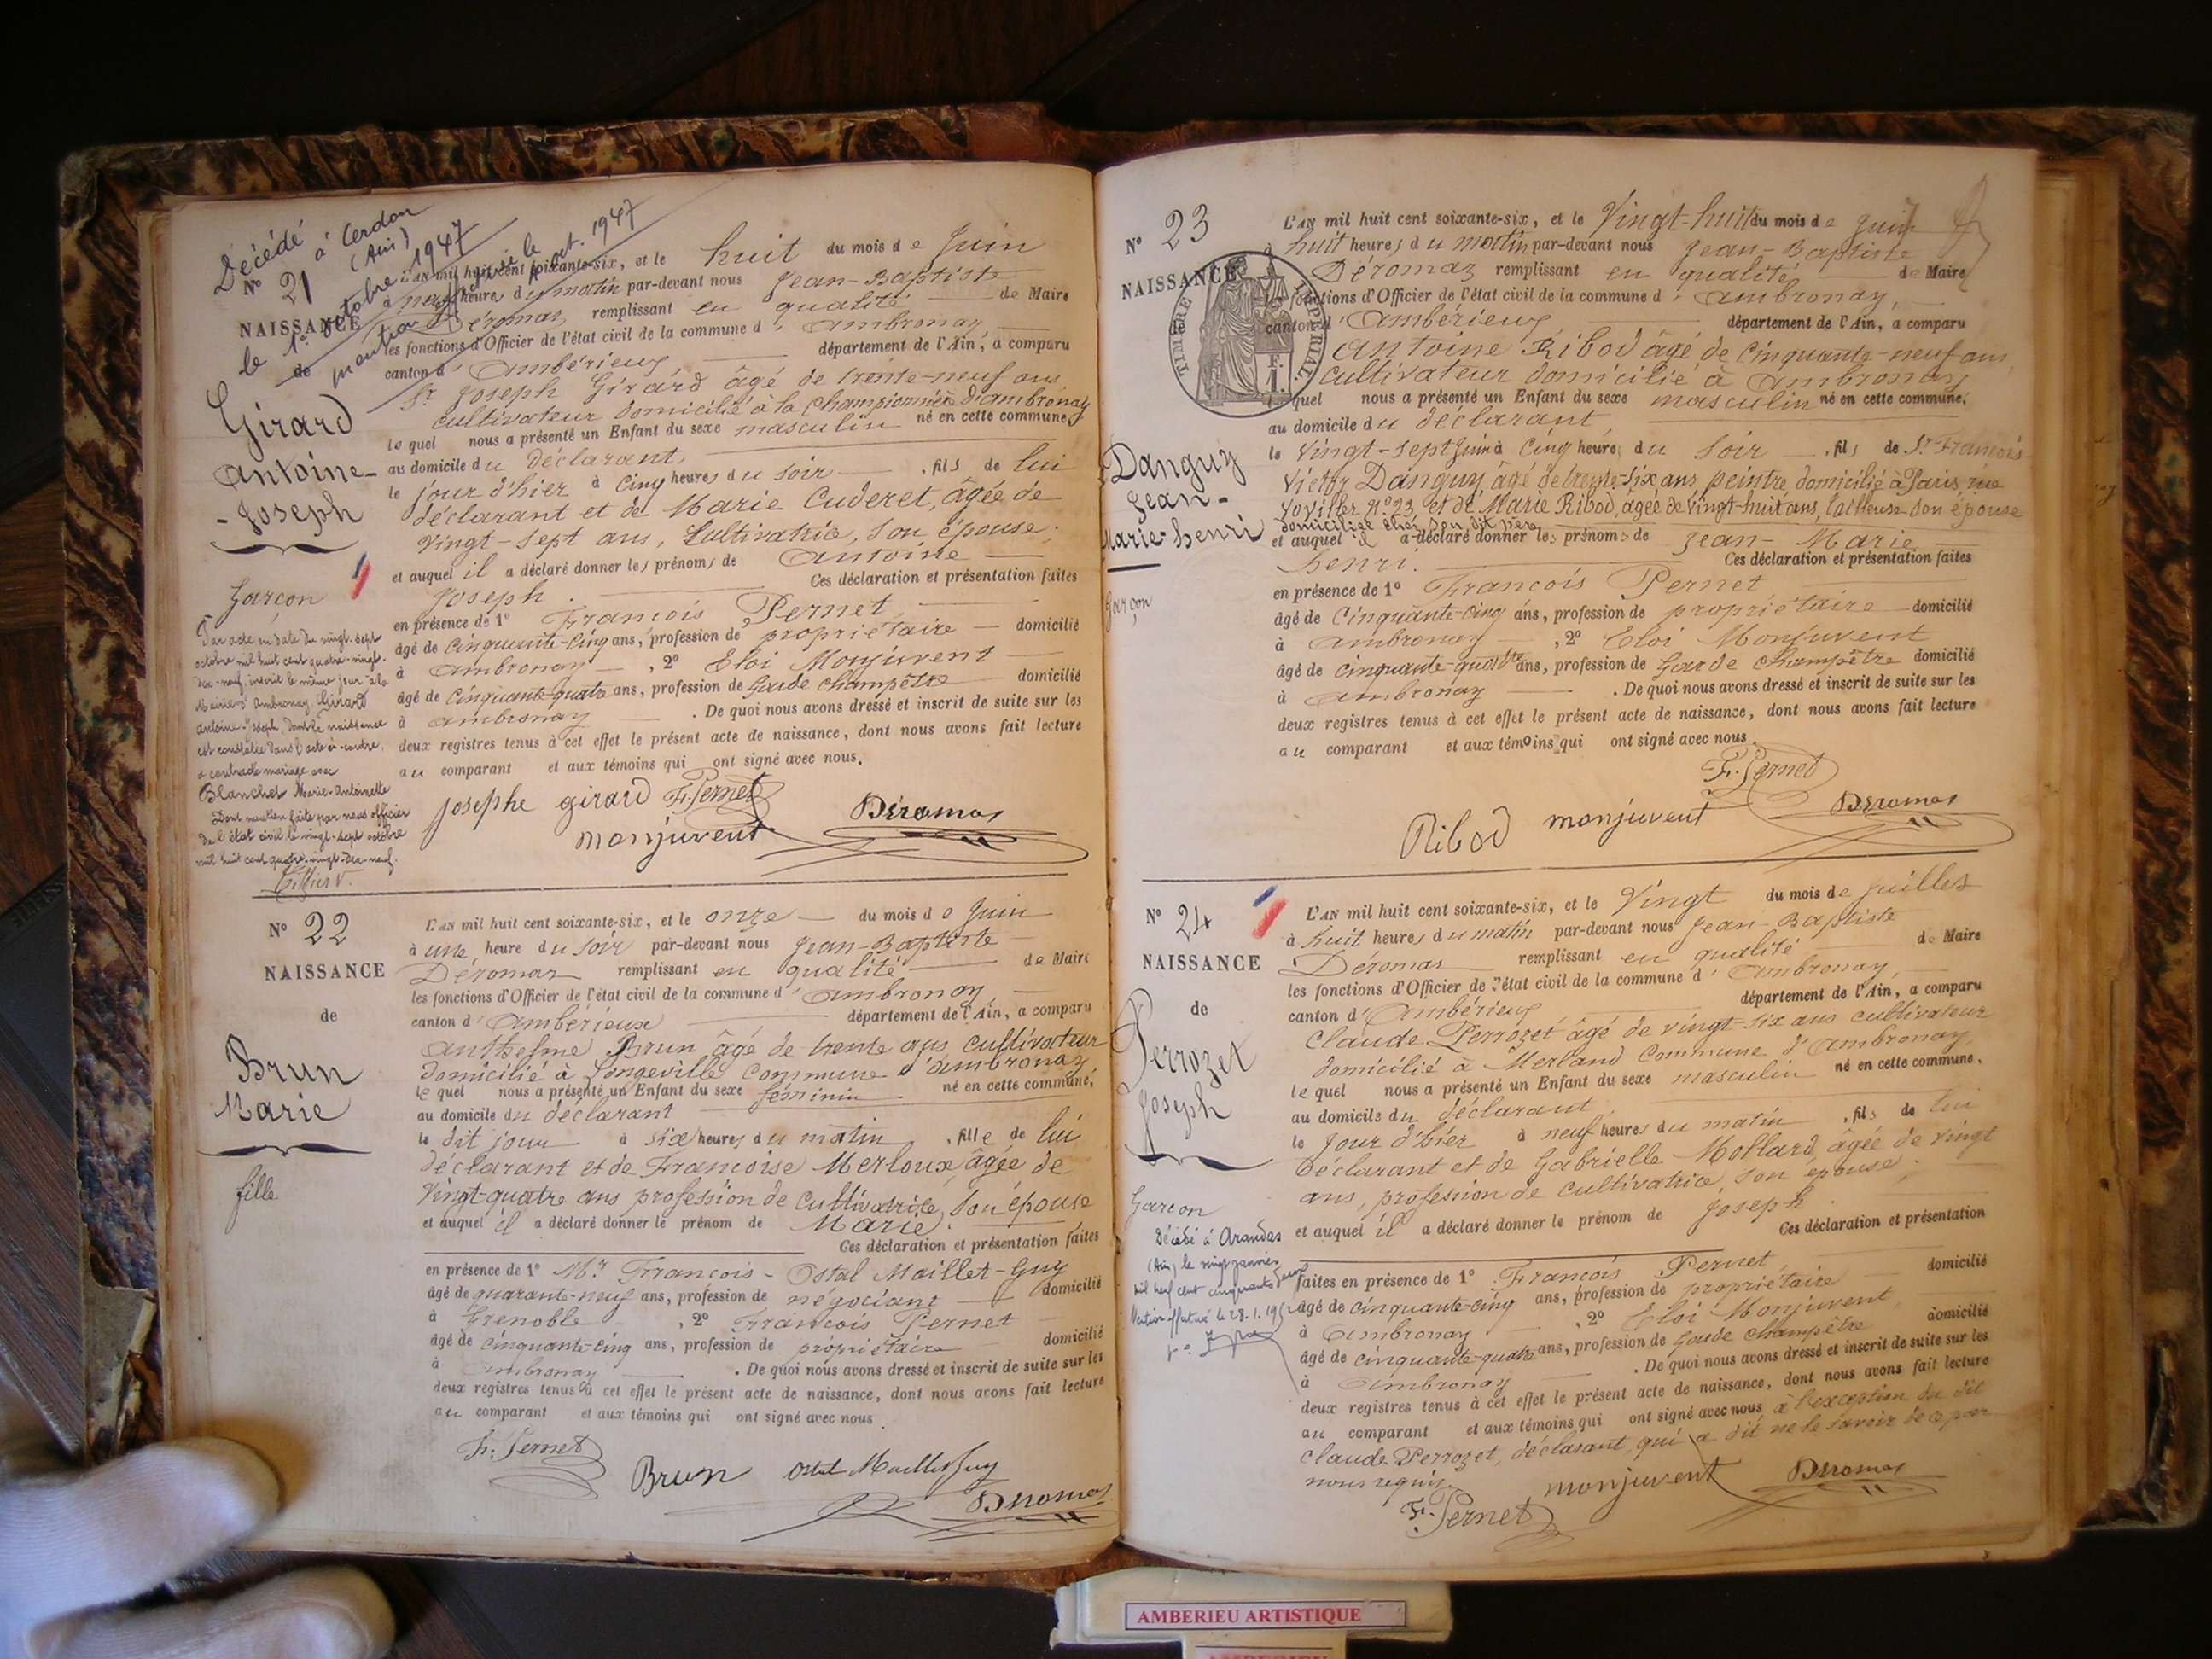 Décédé à Cerdon
(Ain)
le 1er octobre 1947
mention le oct. 1947
N° 21
NAISSANCE
de
Girard
Antoine-
-Joseph
Garçon
Par acte en date du vingt-sept
octobre mil huit cent quatre-vingt-
dix-neuf, inscrit le même jour à la
Mairie d'Ambronay, Girard
Antoine-Joseph, dont la naissance
est constatée dans l'acte ci-contre,
a contracté mariage avec
Blanchet Marie-Antoinette
Dont mention faite par nous officier
de l'état civil le vingt-sept octobre
mil huit cent quatre-vingt-dix-neuf.
L'AN mil huit cent soixante-six, et le huit du mois de Juin
à neuf heures du matin par-devant nous Jean-Baptiste
Déromas remplissant en qualité de Maire
les fonctions d'Officier de l'état civil de la commune d'Ambronay,
canton d'Ambérieux département de l'Ain, a comparu
Sr Joseph Girard âgé de trente-neuf ans
cultivateur domicilié à la Championnière d'ambronay
lequel nous a présenté un Enfant du sexe masculin né en cette commune,
au domicile du déclarant
le jour d'hier à cinq heures du soir, fils de lui
déclarant et de Marie Cuderet, âgée de
vingt-sept ans, Cultivatrice, son épouse;
et auquel il a déclaré donner les prénoms de Antoine
Joseph. Ces déclaration et présentation faites
en présence de 1° François Pernet
âgé de cinquante-cinq ans, profession de propriétaire domicilié
à Ambronay, 2° Eloi Monjuvent
âgé de cinquante-quatre ans, profession de Garde champêtre domicilié
à Ambronay. De quoi nous avons dressé et inscrit de suite sur les
deux registres tenus à cet effet le présent acte de naissance, dont nous avons fait lecture
au comparant et aux témoins qui ont signé avec nous.
Josephe girard F. Pernet
monjuvent Déromas
N° 22
NAISSANCE
de
Brun
Marie
fille
L'AN mil huit cent soixante-six, et le onze du mois de Juin
à une heure du soir par-devant nous Jean-Baptiste
Déromas remplissant en qualité de Maire
les fonctions d'Officier de l'état civil de la commune d'Ambronay,
canton d'Ambérieux département de l'Ain, a comparu
Anthelme Brun âgé de trente ans cultivateur
domicilié à Longeville commune d'ambronay
lequel nous a présenté un Enfant du sexe féminin né en cette commune,
au domicile du déclarant
le dit jour à six heures du matin, fille de lui
déclarant et de Françoise Merloux, âgée de
vingt-quatre ans profession de Cultivatrice, son épouse
et auquel il a déclaré donner le prénom de Marie.
Ces déclaration et présentation faites
en présence de 1° Mr François-Ostal Maillet-Guy
âgé de quarante-neuf ans, profession de négociant domicilié
à Grenoble, 2° François Pernet
âgé de cinquante-cinq ans, profession de propriétaire domicilié
à Ambronay. De quoi nous avons dressé et inscrit de suite sur les
deux registres tenus à cet effet le présent acte de naissance, dont nous avons fait lecture
au comparant et aux témoins qui ont signé avec nous.
F. Pernet
Brun Ostal Maillet Guy
Déromas
N° 23
NAISSANCE
TIMBRE IMPÉRIAL
Danguy
Jean-
Marie-henri
Garçon
L'AN mil huit cent soixante-six, et le Vingt-huit du mois de Juin
à huit heures du matin par-devant nous Jean-Baptiste
Déromas remplissant en qualité de Maire
fonctions d'Officier de l'état civil de la commune d'Ambronay,
canton d'Ambérieux département de l'Ain, a comparu
Antoine Ribod âgé de cinquante-neuf ans,
cultivateur domicilié à Ambronay
quel nous a présenté un Enfant du sexe masculin né en cette commune,
au domicile du déclarant
le vingt-sept Juin à cinq heures du soir, fils de Sr François-
Victor Danguy âgé de trente-six ans peintre, domicilié à Paris, rue
n° 23, et de Marie Ribod, âgée de vingt-huit ans, tailleuse son épouse
domiciliée chez son dit père
et auquel il a déclaré donner les prénoms de Jean-Marie
henri. Ces déclaration et présentation faites
en présence de 1° François Pernet
âgé de Cinquante-cinq ans, profession de propriétaire domicilié
à Ambronay, 2° Eloi Monjuvent
âgé de cinquante-quatre ans, profession de Garde champêtre domicilié
à Ambronay. De quoi nous avons dressé et inscrit de suite sur les
deux registres tenus à cet effet le présent acte de naissance, dont nous avons fait lecture
au comparant et aux témoins qui ont signé avec nous.
F. Pernet
Ribod monjuvent Déromas
N° 24
NAISSANCE
de
Perrozet
Joseph
Garçon
Décédé à Arandas
(Ain) le vingt janvier
mil neuf cent cinquante deux
Mention effectuée le 28.1.1952
L'AN mil huit cent soixante-six, et le Vingt du mois de Juillet
à huit heures du matin par-devant nous Jean-Baptiste
Déromas remplissant en qualité de Maire
les fonctions d'Officier de l'état civil de la commune d'Ambronay,
canton d'Ambérieux département de l'Ain, a comparu
Claude Perrozet âgé de vingt-six ans cultivateur
domicilié à Merland Commune d'Ambronay
lequel nous a présenté un Enfant du sexe masculin né en cette commune.
au domicile du déclarant
le jour d'hier à neuf heures du matin, fils de lui
déclarant et de Gabrielle Mollard âgée de vingt
ans, profession de cultivatrice, son épouse;
et auquel il a déclaré donner le prénom de Joseph.
Ces déclaration et présentation
faites en présence de 1° François Pernet domicilié
âgé de cinquante-cinq ans, profession de propriétaire
à Ambronay, 2° Eloi Monjuvent, domicilié
âgé de cinquante-quatre ans, profession de Garde champêtre
à Ambronay. De quoi nous avons dressé et inscrit de suite sur les
deux registres tenus à cet effet le présent acte de naissance, dont nous avons fait lecture
au comparant et aux témoins qui ont signé avec nous à l'exception du dit
Claude Perrozet, déclarant, qui a dit ne le savoir de ce par
nous requis.
monjuvent Déromas
F. Pernet
AMBERIEU ARTISTIQUE
AMBERIEU